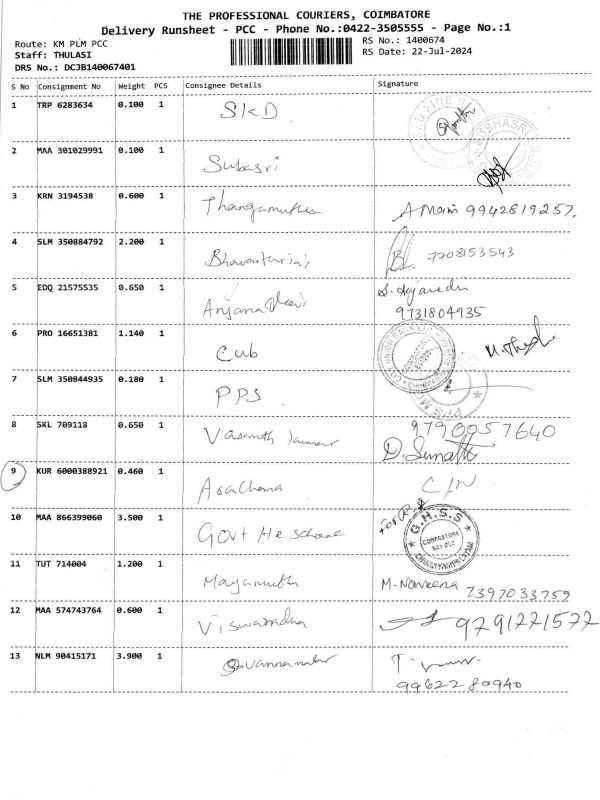 THE PROFESSIONAL COURIERS, COIMBATORE
Delivery Runsheet - PCC - Phone No.:0422-3505555 - Page No.:1
Route: KM PLM PCC
RS No.: 1400674
Staff: THULASI
RS Date: 22-Jul-2024
DRS No.: DCJB140067401
S No Consignment No Weight PCS Consignee Details Signature
1 TRP 6283634 0.100 1 SKD
2 MAA 301029991 0.100 1 Subasri
3 KRN 3194538 0.600 1 Thangamuthu A Mani 9942819257.
4 SLM 350884792 2.200 1 7708153543
5 EDQ 21575535 0.650 1 Anjana Devi
9731804935
6 PRO 16651381 1.140 1 Cub
7 SLM 350844935 0.180 1 PPS
8 SKL 709118 0.650 1 Vasanth 9790057640
9 KUR 6000388921 0.460 1 C/N
10 MAA 866399060 3.500 1 Govt He School
G.H.S.S
COIMBATORE
11 TUT 714004 1.200 1 M-Naveena 7397033759
12 MAA 574743764 0.600 1 9791221572
13 NLM 90415171 3.900 1
99622 80940